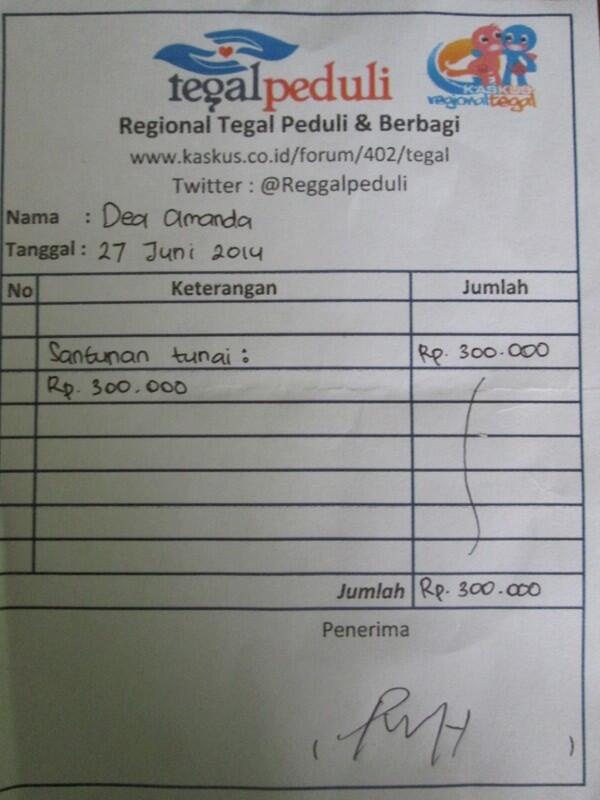 tegalpeduli
KASKUS
regionaltegal
Regional Tegal Peduli & Berbagi
www.kaskus.co.id/forum/402/tegal
Twitter : @Reggalpeduli
Nama : Dea Amanda
Tanggal : 27 Juni 2014
No Keterangan Jumlah
Santunan tunai : Rp. 300.000
Rp. 300.000
Jumlah Rp. 300.000
Penerima
( )